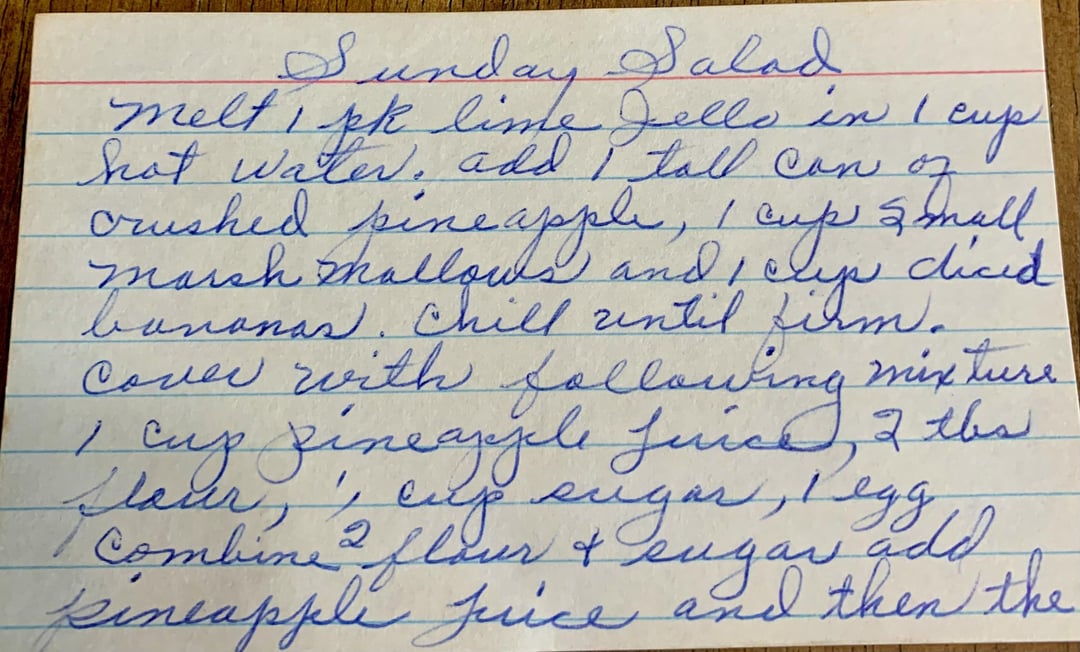 Sunday Salad
Melt 1 pk lime Jello in 1 cup
hot water. add 1 tall can of
crushed pineapple, 1 cup small
marsh mallows and 1 cup diced
bananas. Chill until firm.
Cover with following mixture
1 cup pineapple juice, 2 tbs
flour, 1/2 cup sugar, 1 egg
Combine flour & sugar add
pineapple juice and then the